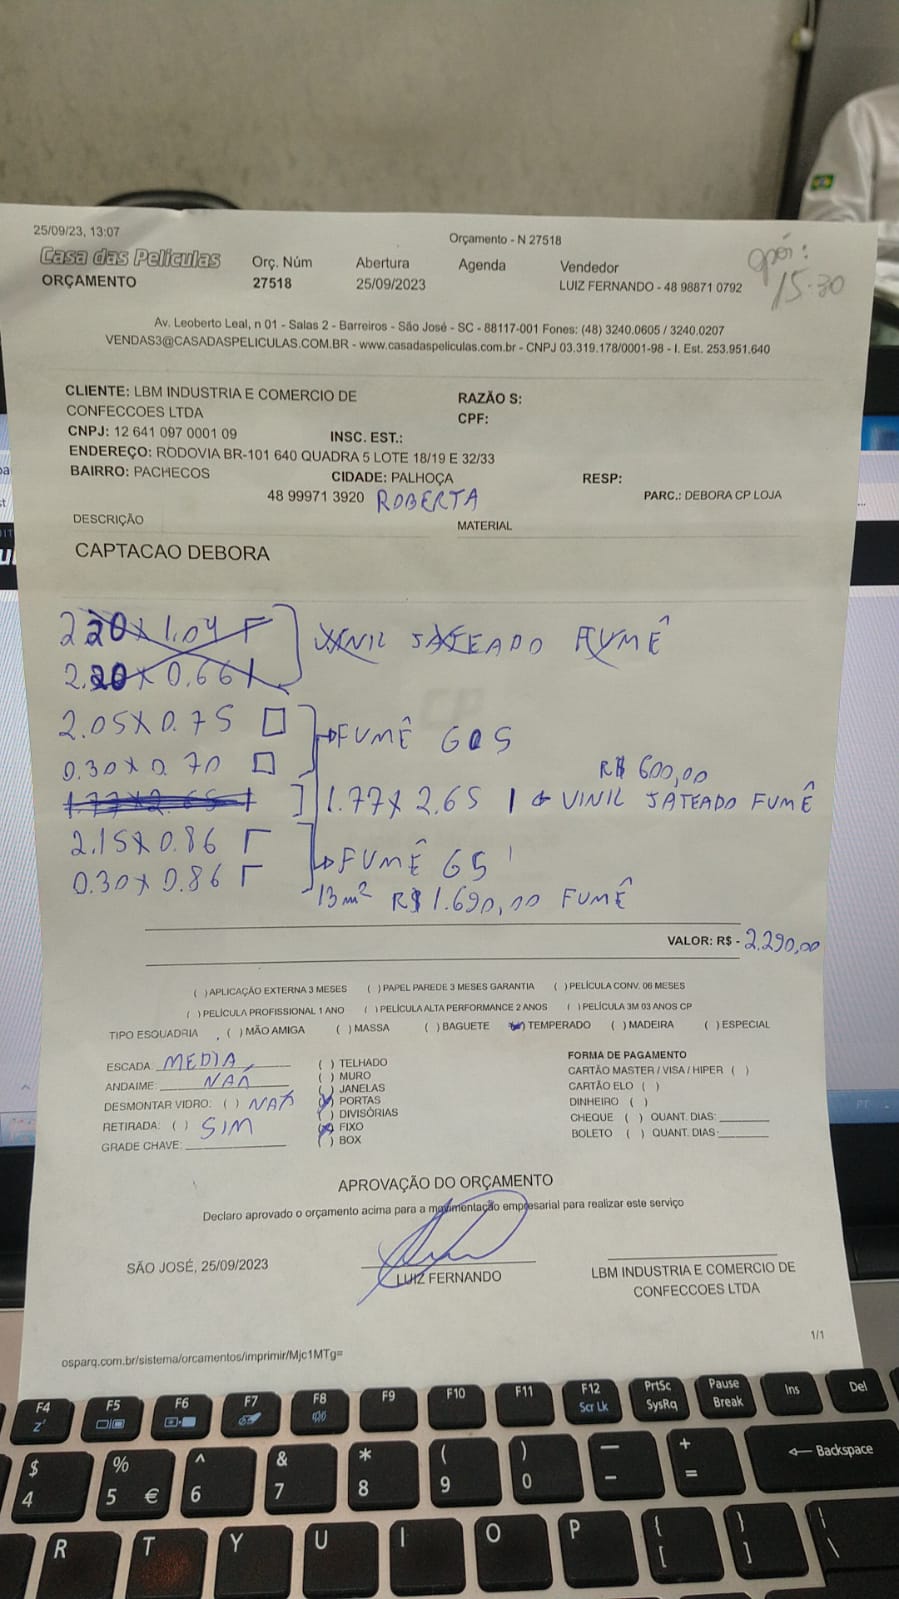 25/09/23, 13:07
Orçamento - N 27518
após:
15:30
Casa das Películas
ORÇAMENTO
Orç. Núm
27518
Abertura
25/09/2023
Agenda
Vendedor
LUIZ FERNANDO - 48 98871 0792
Av. Leoberto Leal, n 01 - Salas 2 - Barreiros - São José - SC - 88117-001 Fones: (48) 3240.0605 / 3240.0207
VENDAS3@CASADASPELICULAS.COM.BR - www.casadaspeliculas.com.br - CNPJ 03.319.178/0001-98 - I. Est. 253.951.640
CLIENTE: LBM INDUSTRIA E COMERCIO DE
CONFECCOES LTDA
RAZÃO S:
CPF:
CNPJ: 12 641 097 0001 09
INSC. EST.:
ENDEREÇO: RODOVIA BR-101 640 QUADRA 5 LOTE 18/19 E 32/33
BAIRRO: PACHECOS
CIDADE: PALHOÇA
RESP:
48 99971 3920 ROBERTA
PARC.: DEBORA CP LOJA
DESCRIÇÃO
MATERIAL
CAPTACAO DEBORA
2.20 x 1.04
2.20 x 0.66
VINIL JATEADO FUMÊ
2.05 x 0.75
FUMÊ G05
0.30 x 0.70
R$ 600,00
1.77 x 2.65 1
1.77 x 2.65 1 VINIL JATEADO FUMÊ
2.15 x 0.86
FUMÊ G5
0.30 x 0.86
13m² R$ 1.690,00 FUMÊ
VALOR: R$ - 2.290,00
( ) APLICAÇÃO EXTERNA 3 MESES ( ) PAPEL PAREDE 3 MESES GARANTIA ( ) PELÍCULA CONV. 06 MESES
( ) PELÍCULA PROFISSIONAL 1 ANO ( ) PELÍCULA ALTA PERFORMANCE 2 ANOS ( ) PELÍCULA 3M 03 ANOS CP
TIPO ESQUADRIA ( ) MÃO AMIGA ( ) MASSA ( ) BAGUETE (x) TEMPERADO ( ) MADEIRA ( ) ESPECIAL
ESCADA: MEDIA
ANDAIME: NAÃ
DESMONTAR VIDRO: ( ) NAÃ
RETIRADA: ( ) SIM
GRADE CHAVE:
( ) TELHADO
( ) MURO
( ) JANELAS
(x) PORTAS
( ) DIVISÓRIAS
(x) FIXO
( ) BOX
FORMA DE PAGAMENTO
CARTÃO MASTER / VISA / HIPER ( )
CARTÃO ELO ( )
DINHEIRO ( )
CHEQUE ( ) QUANT. DIAS:
BOLETO ( ) QUANT. DIAS:
APROVAÇÃO DO ORÇAMENTO
Declaro aprovado o orçamento acima para a movimentação empresarial para realizar este serviço
SÃO JOSÉ, 25/09/2023
LUIZ FERNANDO
LBM INDUSTRIA E COMERCIO DE
CONFECCOES LTDA
1/1
osparq.com.br/sistema/orcamentos/imprimir/Mjc1MTg=
F4 F5 F6 F7 F8 F9 F10 F11 F12 Scr Lk PrtSc SysRq Pause Break Ins Del
$ 4 % 5 € ^ 6 & 7 * 8 ( 9 ) 0 — - + = Backspace
R T Y U I O P { [ } ] | \